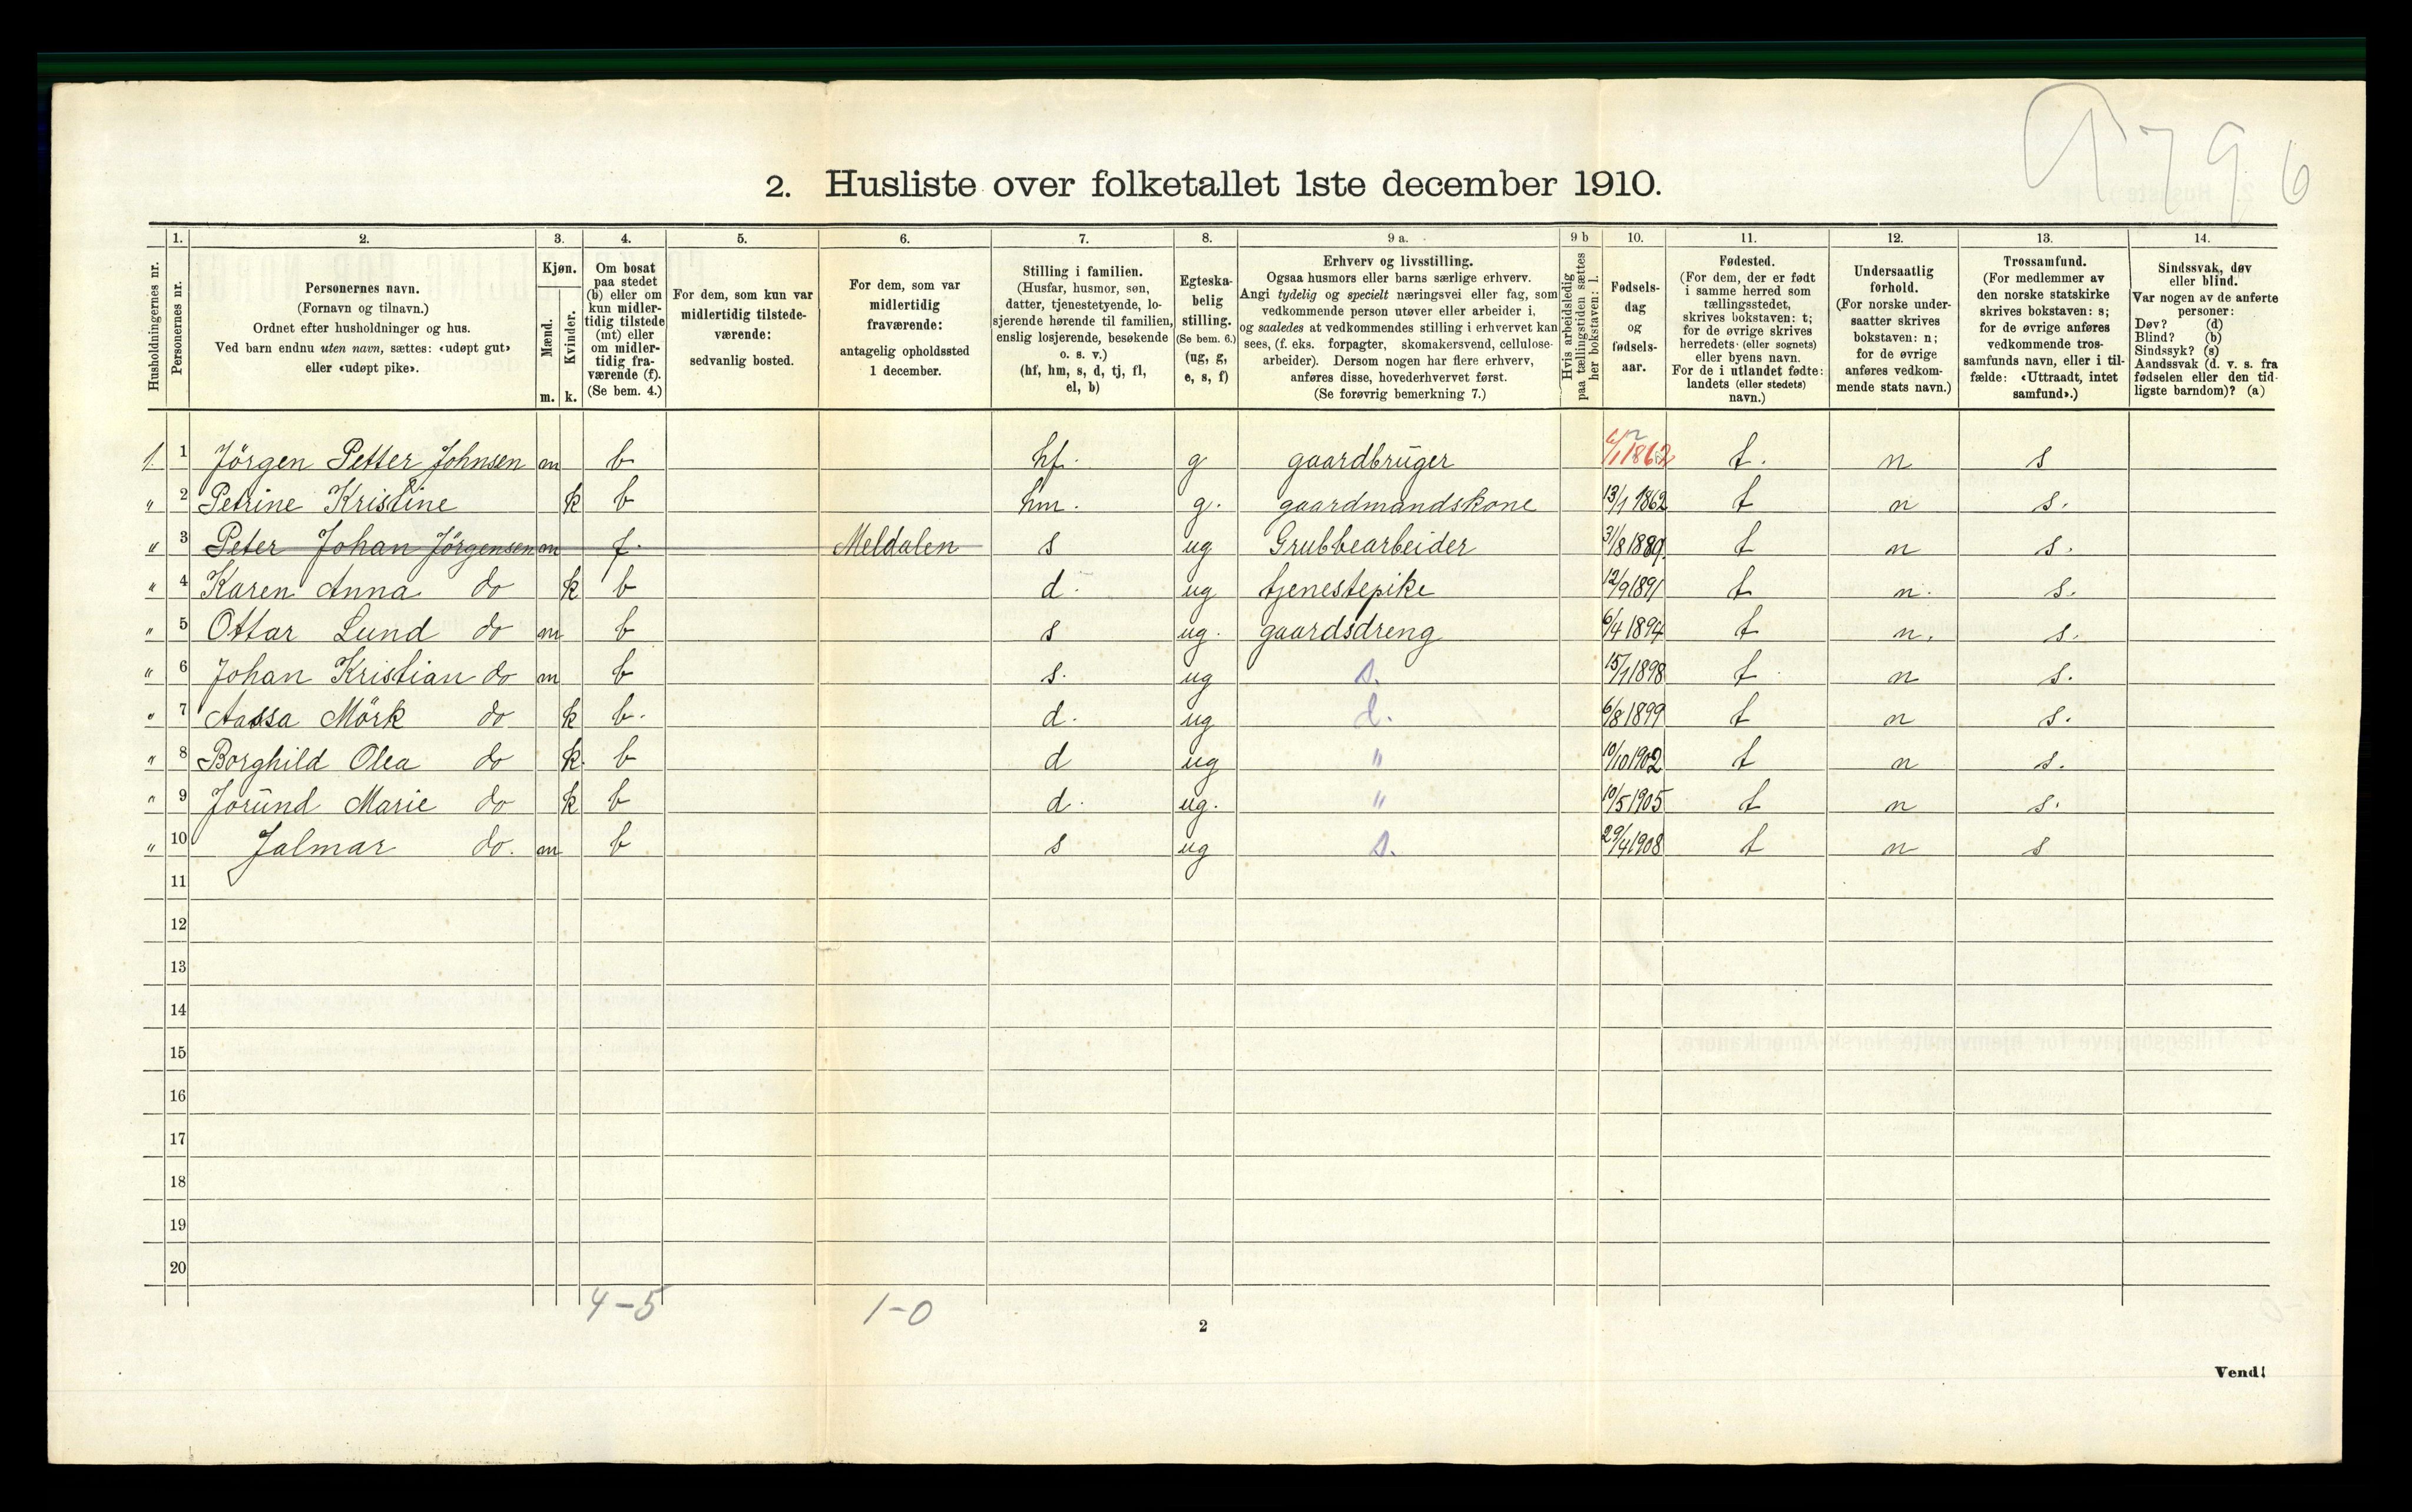 796
2. Husliste over folketallet 1ste december 1910.
Husholdningernes nr.
1. Personernes nr.
2. Personernes navn.
(Fornavn og tilnavn.)
Ordnet efter husholdninger og hus.
Ved barn endnu uten navn, sættes: «udøpt gut»
eller «udøpt pike».
3. Kjøn.
Mænd. m.
Kvinder. k.
4. Om bosat
paa stedet
(b) eller om
kun midler-
tidig tilstede
(mt) eller
om midler-
tidig fra-
værende (f).
(Se bem. 4.)
5. For dem, som kun var
midlertidig tilstede-
værende:
sedvanlig bosted.
6. For dem, som var
midlertidig
fraværende:
antagelig opholdssted
1 december.
7. Stilling i familien.
(Husfar, husmor, søn,
datter, tjenestetyende, lo-
sjerende hørende til familien,
enslig losjerende, besøkende
o. s. v.)
(hf, hm, s, d, tj, fl,
el, b)
8. Egteska-
belig
stilling.
(Se bem. 6.)
(ug, g,
e, s, f)
9 a. Erhverv og livsstilling.
Ogsaa husmors eller barns særlige erhverv.
Angi tydelig og specielt næringsvei eller fag, som
vedkommende person utøver eller arbeider i,
og saaledes at vedkommendes stilling i erhvervet kan
sees, (f. eks. forpagter, skomakersvend, cellulose-
arbeider). Dersom nogen har flere erhverv,
anføres disse, hovederhvervet først.
(Se forøvrig bemerkning 7.)
9 b Hvis arbeidsledig
paa tællingstiden sættes
her bokstaven: l.
10. Fødsels-
dag
og
fødsels-
aar.
11. Fødested.
(For dem, der er født
i samme herred som
tællingsstedet,
skrives bokstaven: t;
for de øvrige skrives
herredets (eller sognets)
eller byens navn.
For de i utlandet fødte:
landets (eller stedets)
navn.)
12. Undersaatlig
forhold.
(For norske under-
saatter skrives
bokstaven: n;
for de øvrige
anføres vedkom-
mende stats navn.)
13. Trossamfund.
(For medlemmer av
den norske statskirke
skrives bokstaven: s;
for de øvrige anføres
vedkommende tros-
samfunds navn, eller i til-
fælde: «Uttraadt, intet
samfund».)
14. Sindssvak, døv
eller blind.
Var nogen av de anførte
personer:
Døv? (d)
Blind? (b)
Sindssyk? (s)
Aandssvak (d. v. s. fra
fødselen eller den tid-
ligste barndom)? (a)
1. 1 Jörgen Petter Johnsen m b hf. g gaardbruger 1862 t. n s
" 2 Petrine Kristine k b hm. g. gaardmandskone 13/1 1862 t n s.
" 3 Peter Johan Jörgensen m f. Meldalen s ug Grubbearbeider 31/8 1889. t n s.
" 4 Karen Anna do k b d. ug tjenestepike 12/9 1891 t n. s.
" 5 Ottar Lund do m b s ug. gaardsdreng 6/4 1894 t n. s.
" 6 Johan Kristian do m b s. ug s. 15/1 1898 t n s.
" 7 Aassa Mörk do k b. d. ug d. 6/8 1899 t n s.
" 8 Borghild Olea do k. b d ug " 10/10 1902 t n s.
" 9 Jorund Marie do k b d. ug. " 10/5 1905 t n s.
" 10 Jalmar do. m b s ug s. 29/4 1908 t n s
11
12
13
14
15
16
17
18
19
20
4-5 1-0
2
Vend!